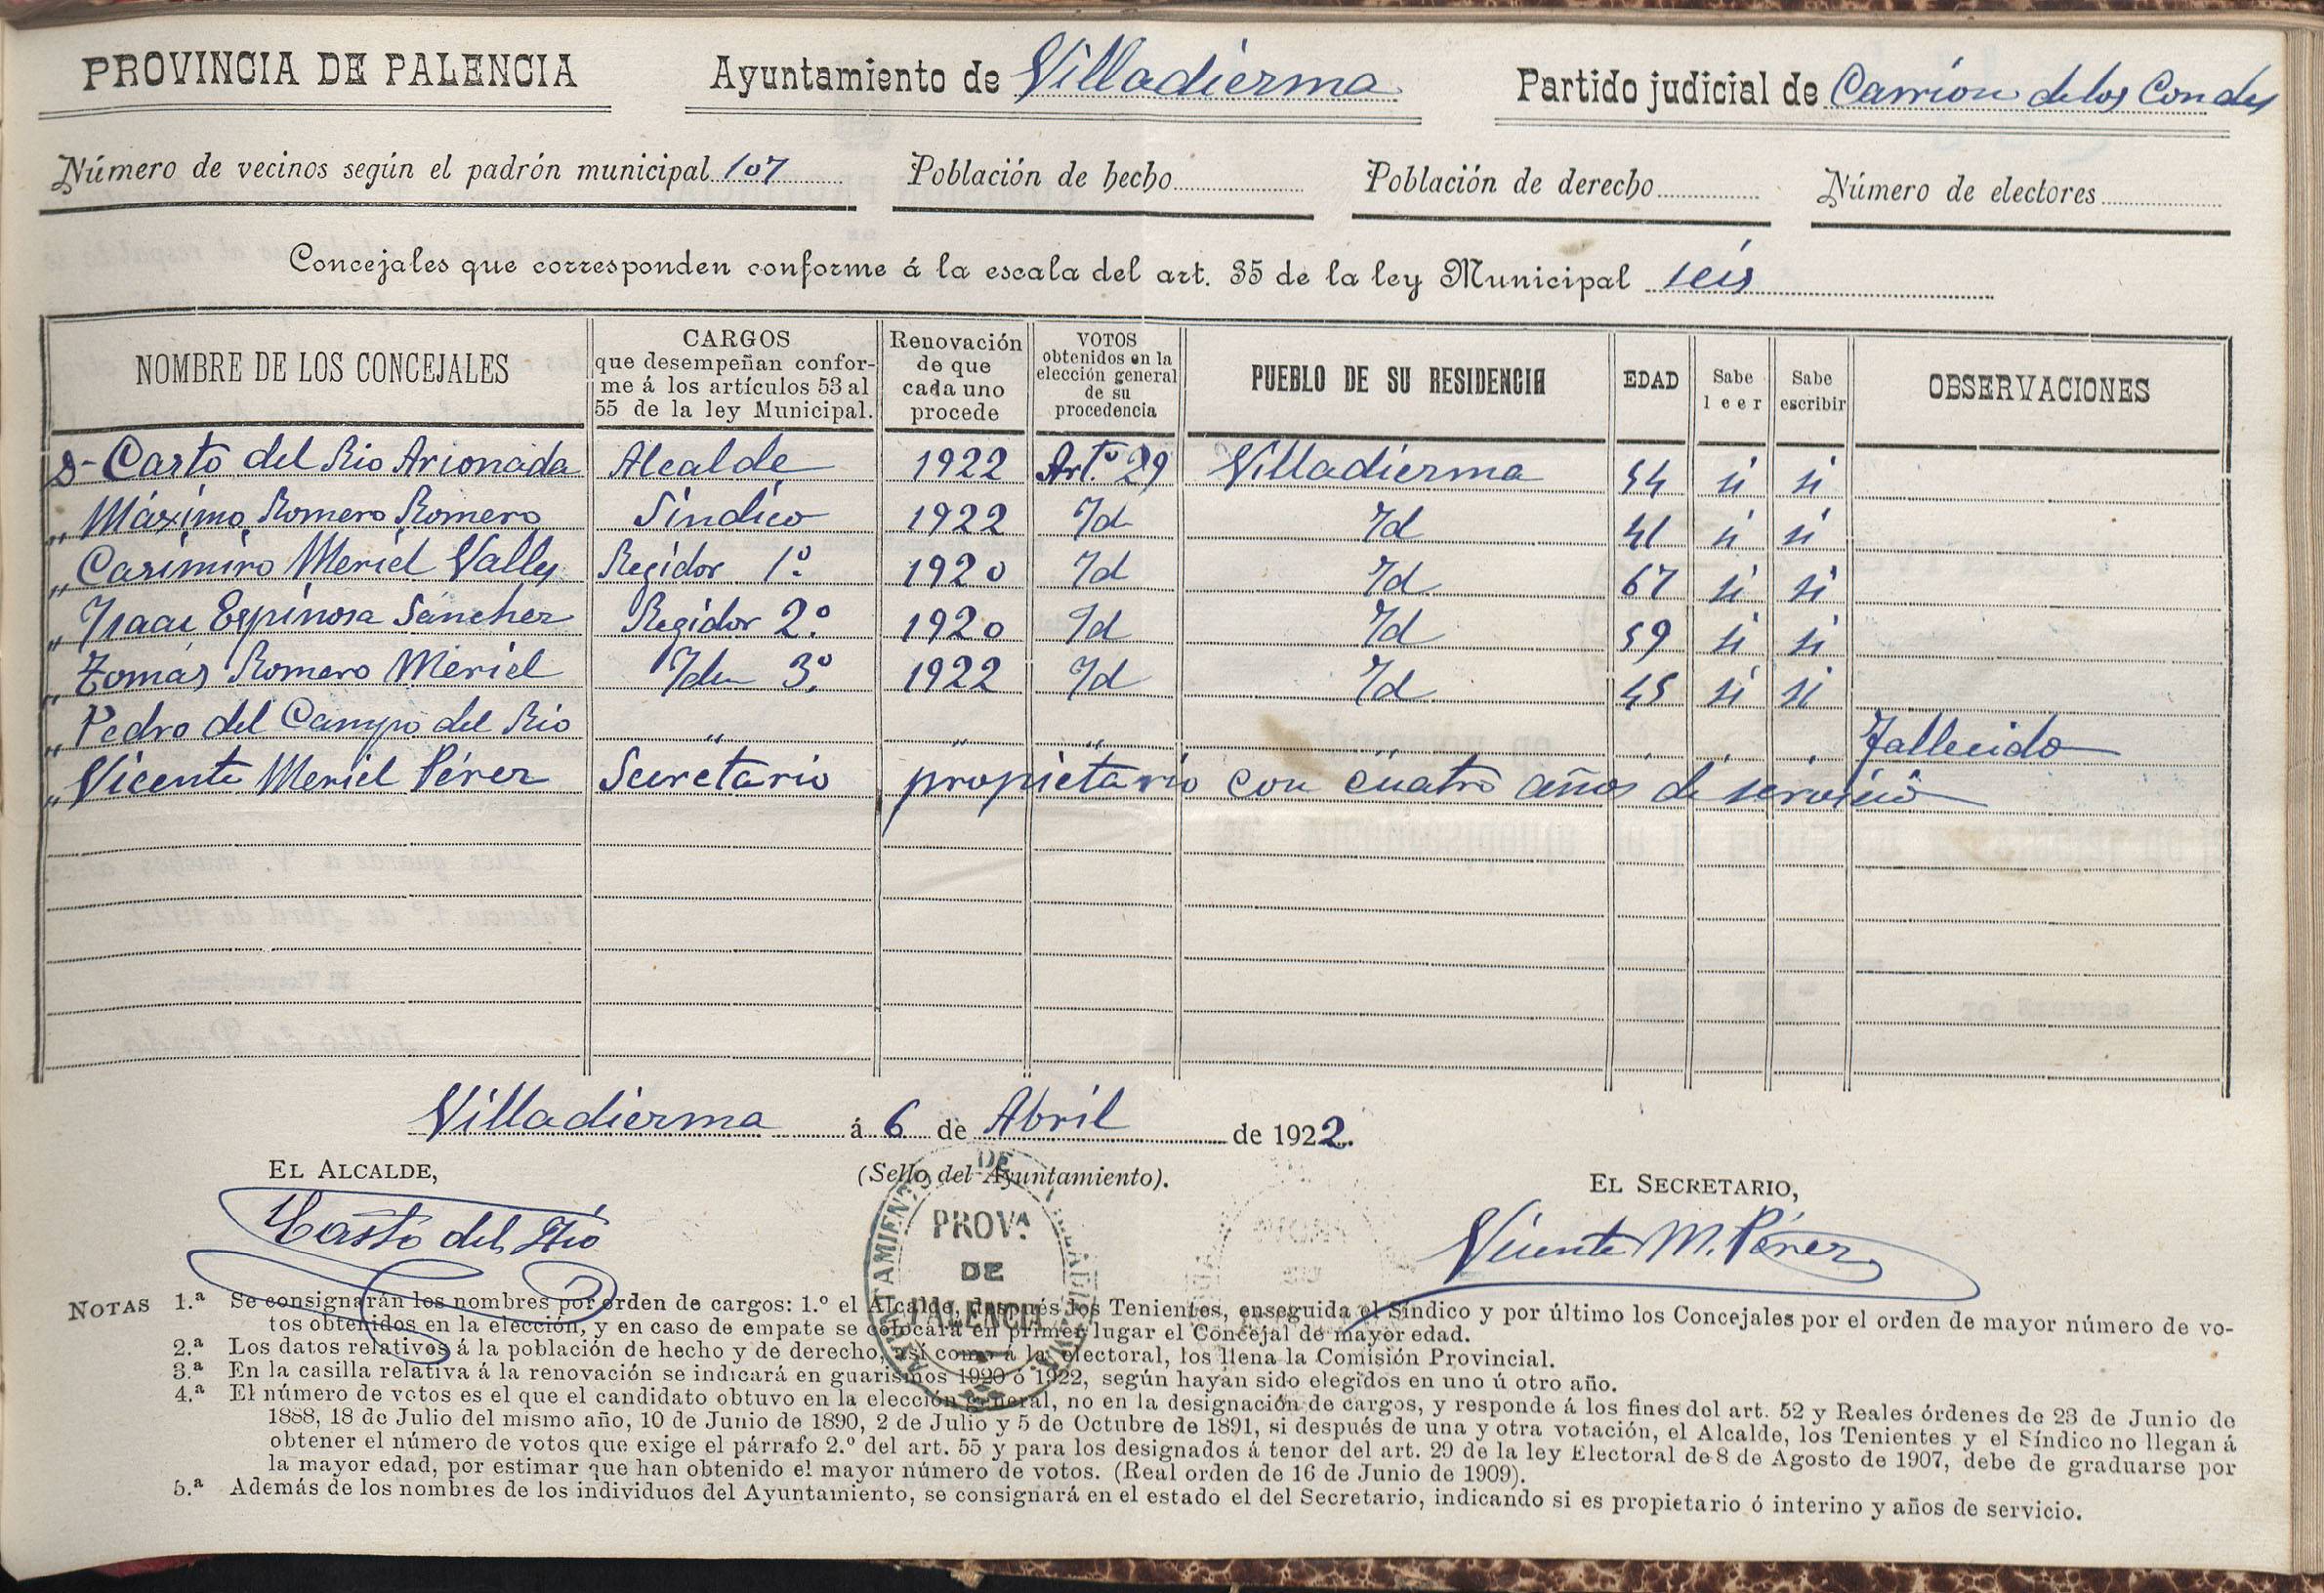 PROVINCIA DE PALENCIA Ayuntamiento de Villadierma Partido judicial de Carrión de los Condes
Número de vecinos según el padrón municipal 107 Población de hecho Población de derecho Número de electores
Concejales que corresponden conforme á la escala del art. 35 de la ley Municipal seis
NOMBRE DE LOS CONCEJALES
CARGOS
que desempeñan confor-
me á los artículos 53 al
55 de la ley Municipal.
Renovación
de que
cada uno
procede
VOTOS
obtenidos en la
elección general
de su
procedencia
PUEBLO DE SU RESIDENCIA
EDAD
Sabe
leer
Sabe
escribir
OBSERVACIONES
D- Casto del Rio Arionada Alcalde 1922 Art.º 29 Villadierma 54 si si
„ Máximo Romero Romero Síndico 1922 Id Id 41 si si
„ Casimiro Meriel Valles Regidor 1.º 1920 Id Id 67 si si
„ Isaac Espinosa Sánchez Regidor 2.º 1920 Id Id 59 si si
„ Tomás Romero Meriel Idem 3.º 1922 Id Id 45 si si
„ Pedro del Campo del Rio „ „ „ „ Fallecido
„ Vicente Meriel Pérez Secretario propietario con cuatro años de servicio
Villadierma á 6 de Abril de 1922.
EL ALCALDE, (Sello del Ayuntamiento). EL SECRETARIO,
Casto del Rio
Vicente M. Pérez
PROVA
DE
PALENCIA
NOTAS 1.ª Se consignarán los nombres por orden de cargos: 1.º el Alcalde, después los Tenientes, enseguida el Síndico y por último los Concejales por el orden de mayor número de vo-
tos obtenidos en la elección, y en caso de empate se colocará en primer lugar el Concejal de mayor edad.
2.ª Los datos relativos á la población de hecho y de derecho, así como á la electoral, los llena la Comisión Provincial.
3.ª En la casilla relativa á la renovación se indicará en guarismos 1920 ó 1922, según hayan sido elegidos en uno ú otro año.
4.ª El número de votos es el que el candidato obtuvo en la elección general, no en la designación de cargos, y responde á los fines del art. 52 y Reales órdenes de 23 de Junio de
1888, 18 de Julio del mismo año, 10 de Junio de 1890, 2 de Julio y 5 de Octubre de 1891, si después de una y otra votación, el Alcalde, los Tenientes y el Síndico no llegan á
obtener el número de votos que exige el párrafo 2.º del art. 55 y para los designados á tenor del art. 29 de la ley Electoral de 8 de Agosto de 1907, debe de graduarse por
la mayor edad, por estimar que han obtenido el mayor número de votos. (Real orden de 16 de Junio de 1909).
5.ª Además de los nombres de los individuos del Ayuntamiento, se consignará en el estado el del Secretario, indicando si es propietario ó interino y años de servicio.